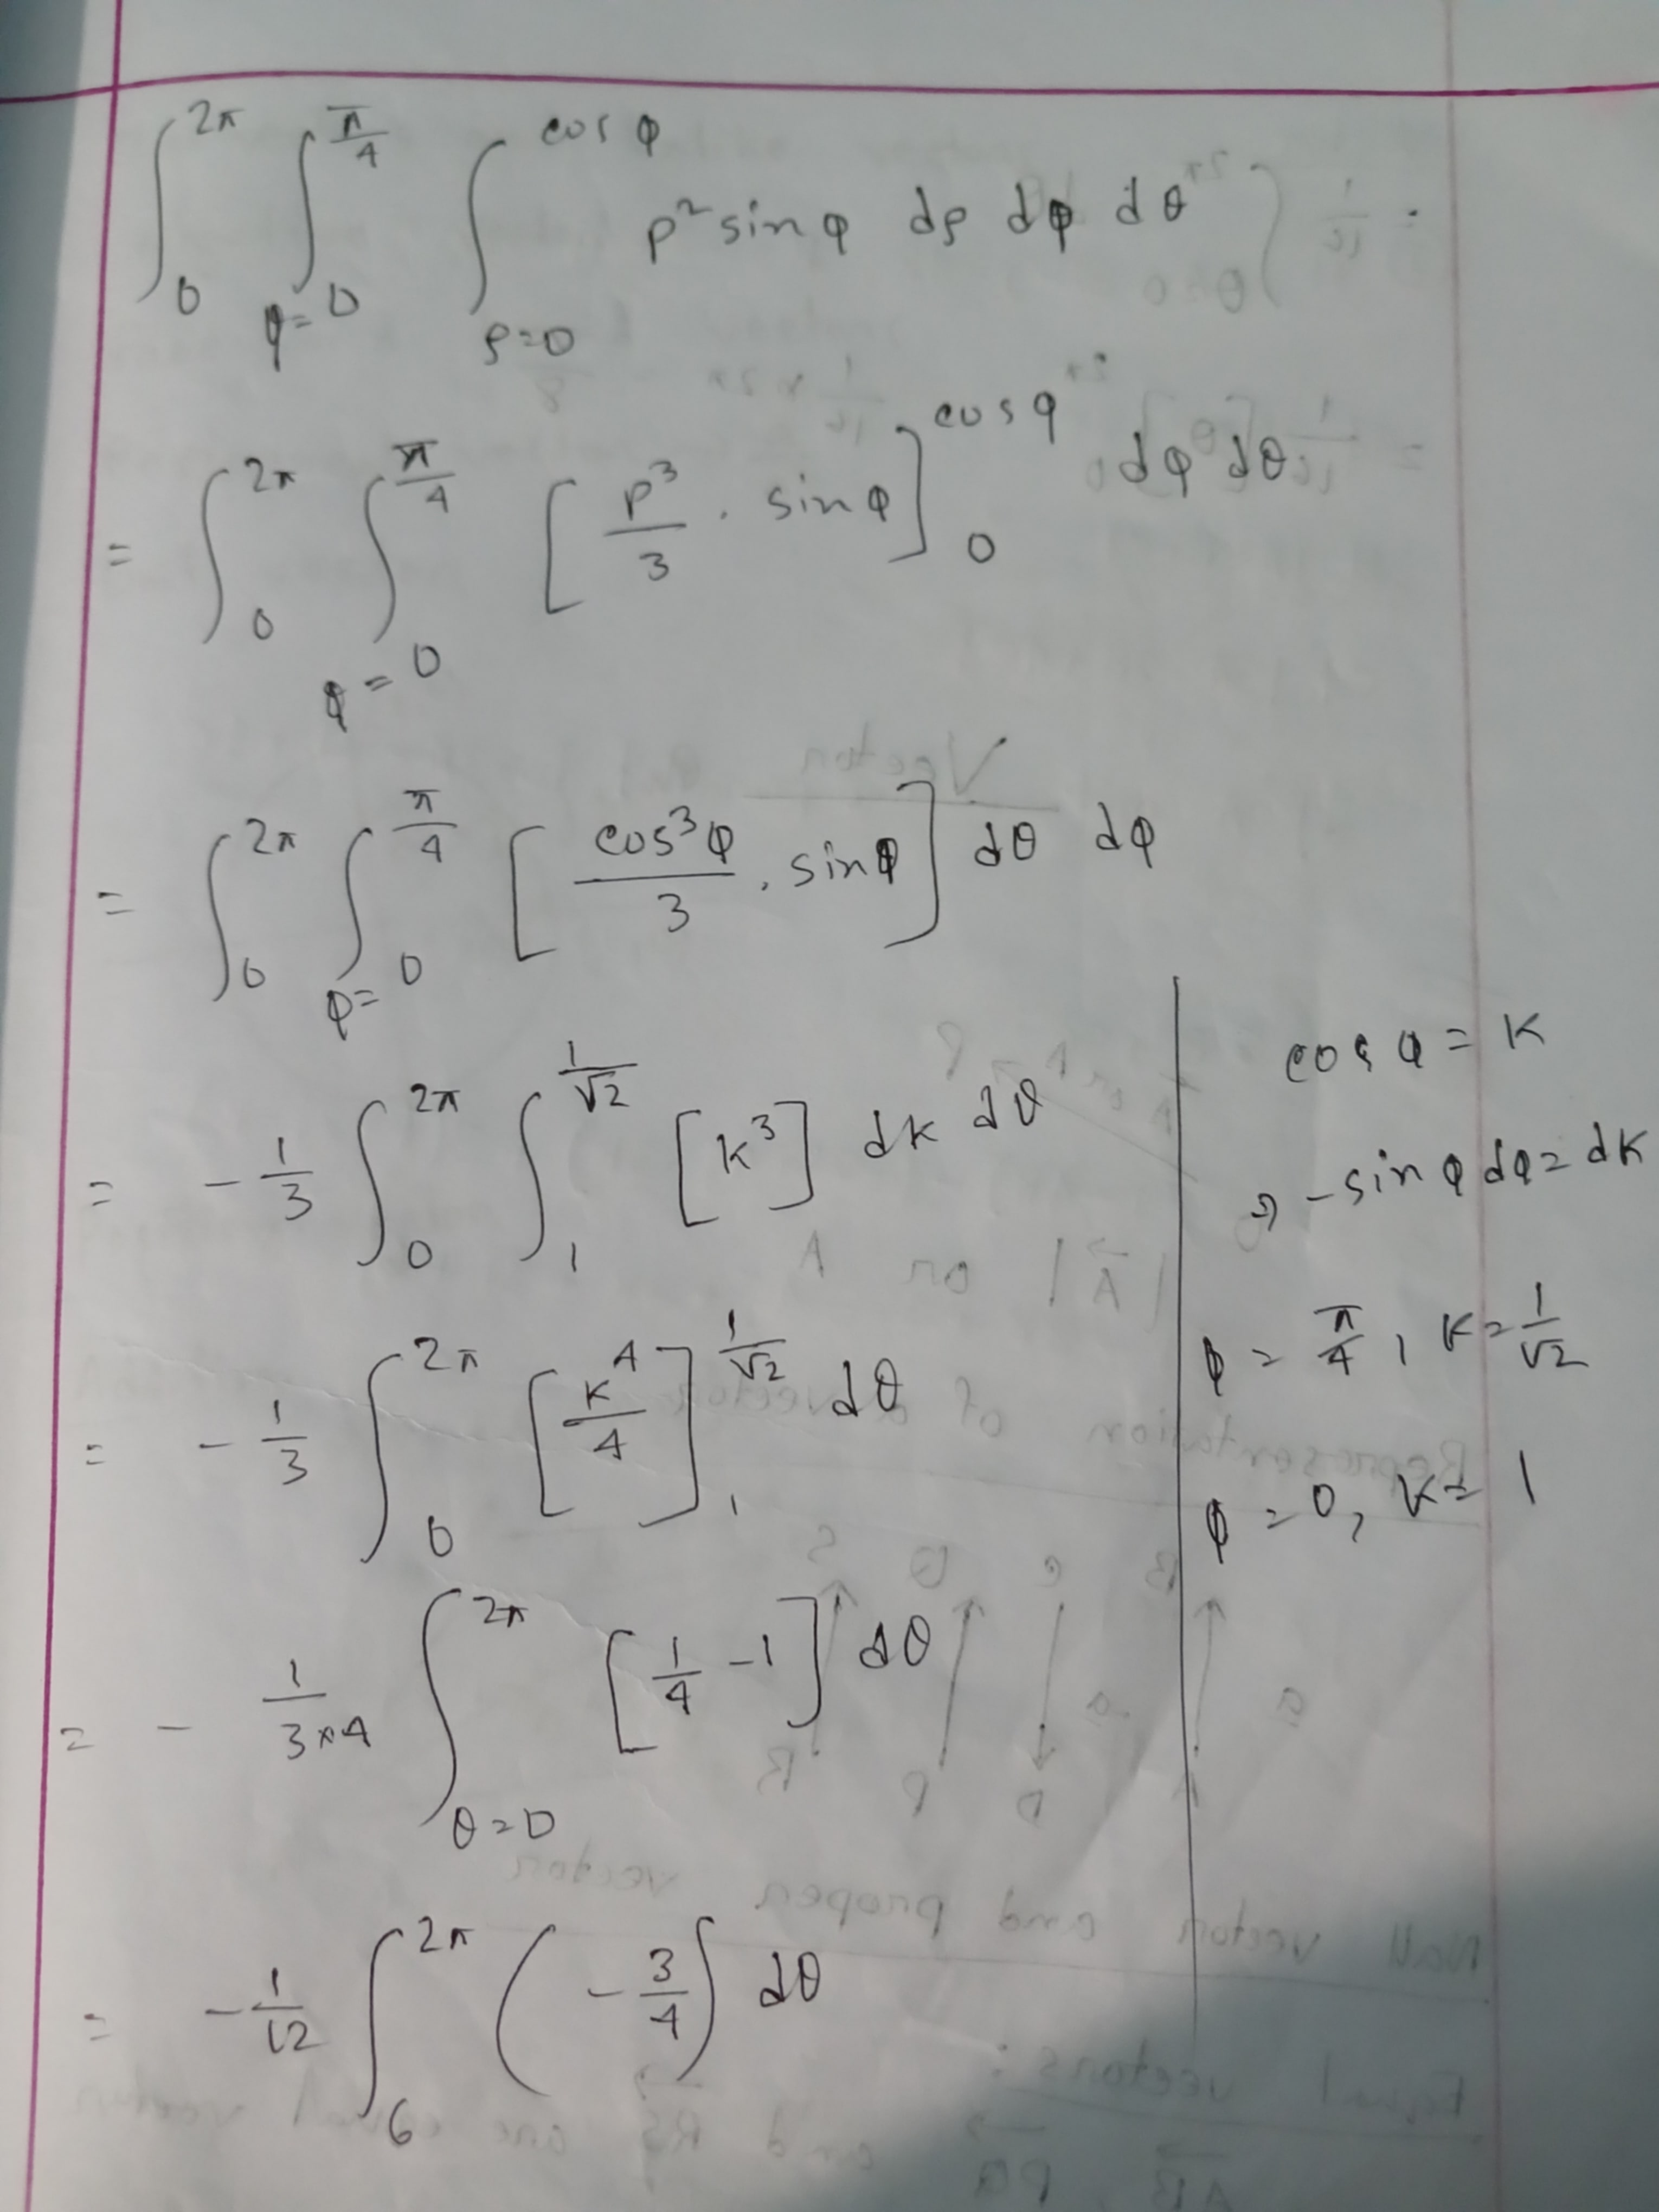 ∫_0^{2π} ∫_{φ=0}^{π/4} ∫_{ρ=0}^{cos φ} ρ² sin φ dρ dφ dθ
= ∫_0^{2π} ∫_{φ=0}^{π/4} [ρ³/3 . sin φ]_0^{cos φ} dφ dθ
= ∫_0^{2π} ∫_{φ=0}^{π/4} [cos³φ/3 . sin φ] dθ dφ
= -1/3 ∫_0^{2π} ∫_1^{1/√2} [k³] dk dθ
= -1/3 ∫_0^{2π} [k⁴/4]_1^{1/√2} dθ
= - 1/(3×4) ∫_{θ=0}^{2π} [1/4 - 1] dθ
= -1/12 ∫_0^{2π} (-3/4) dθ
cos φ = k
⇒ -sin φ dφ = dk
φ = π/4, k = 1/√2
φ = 0, k = 1